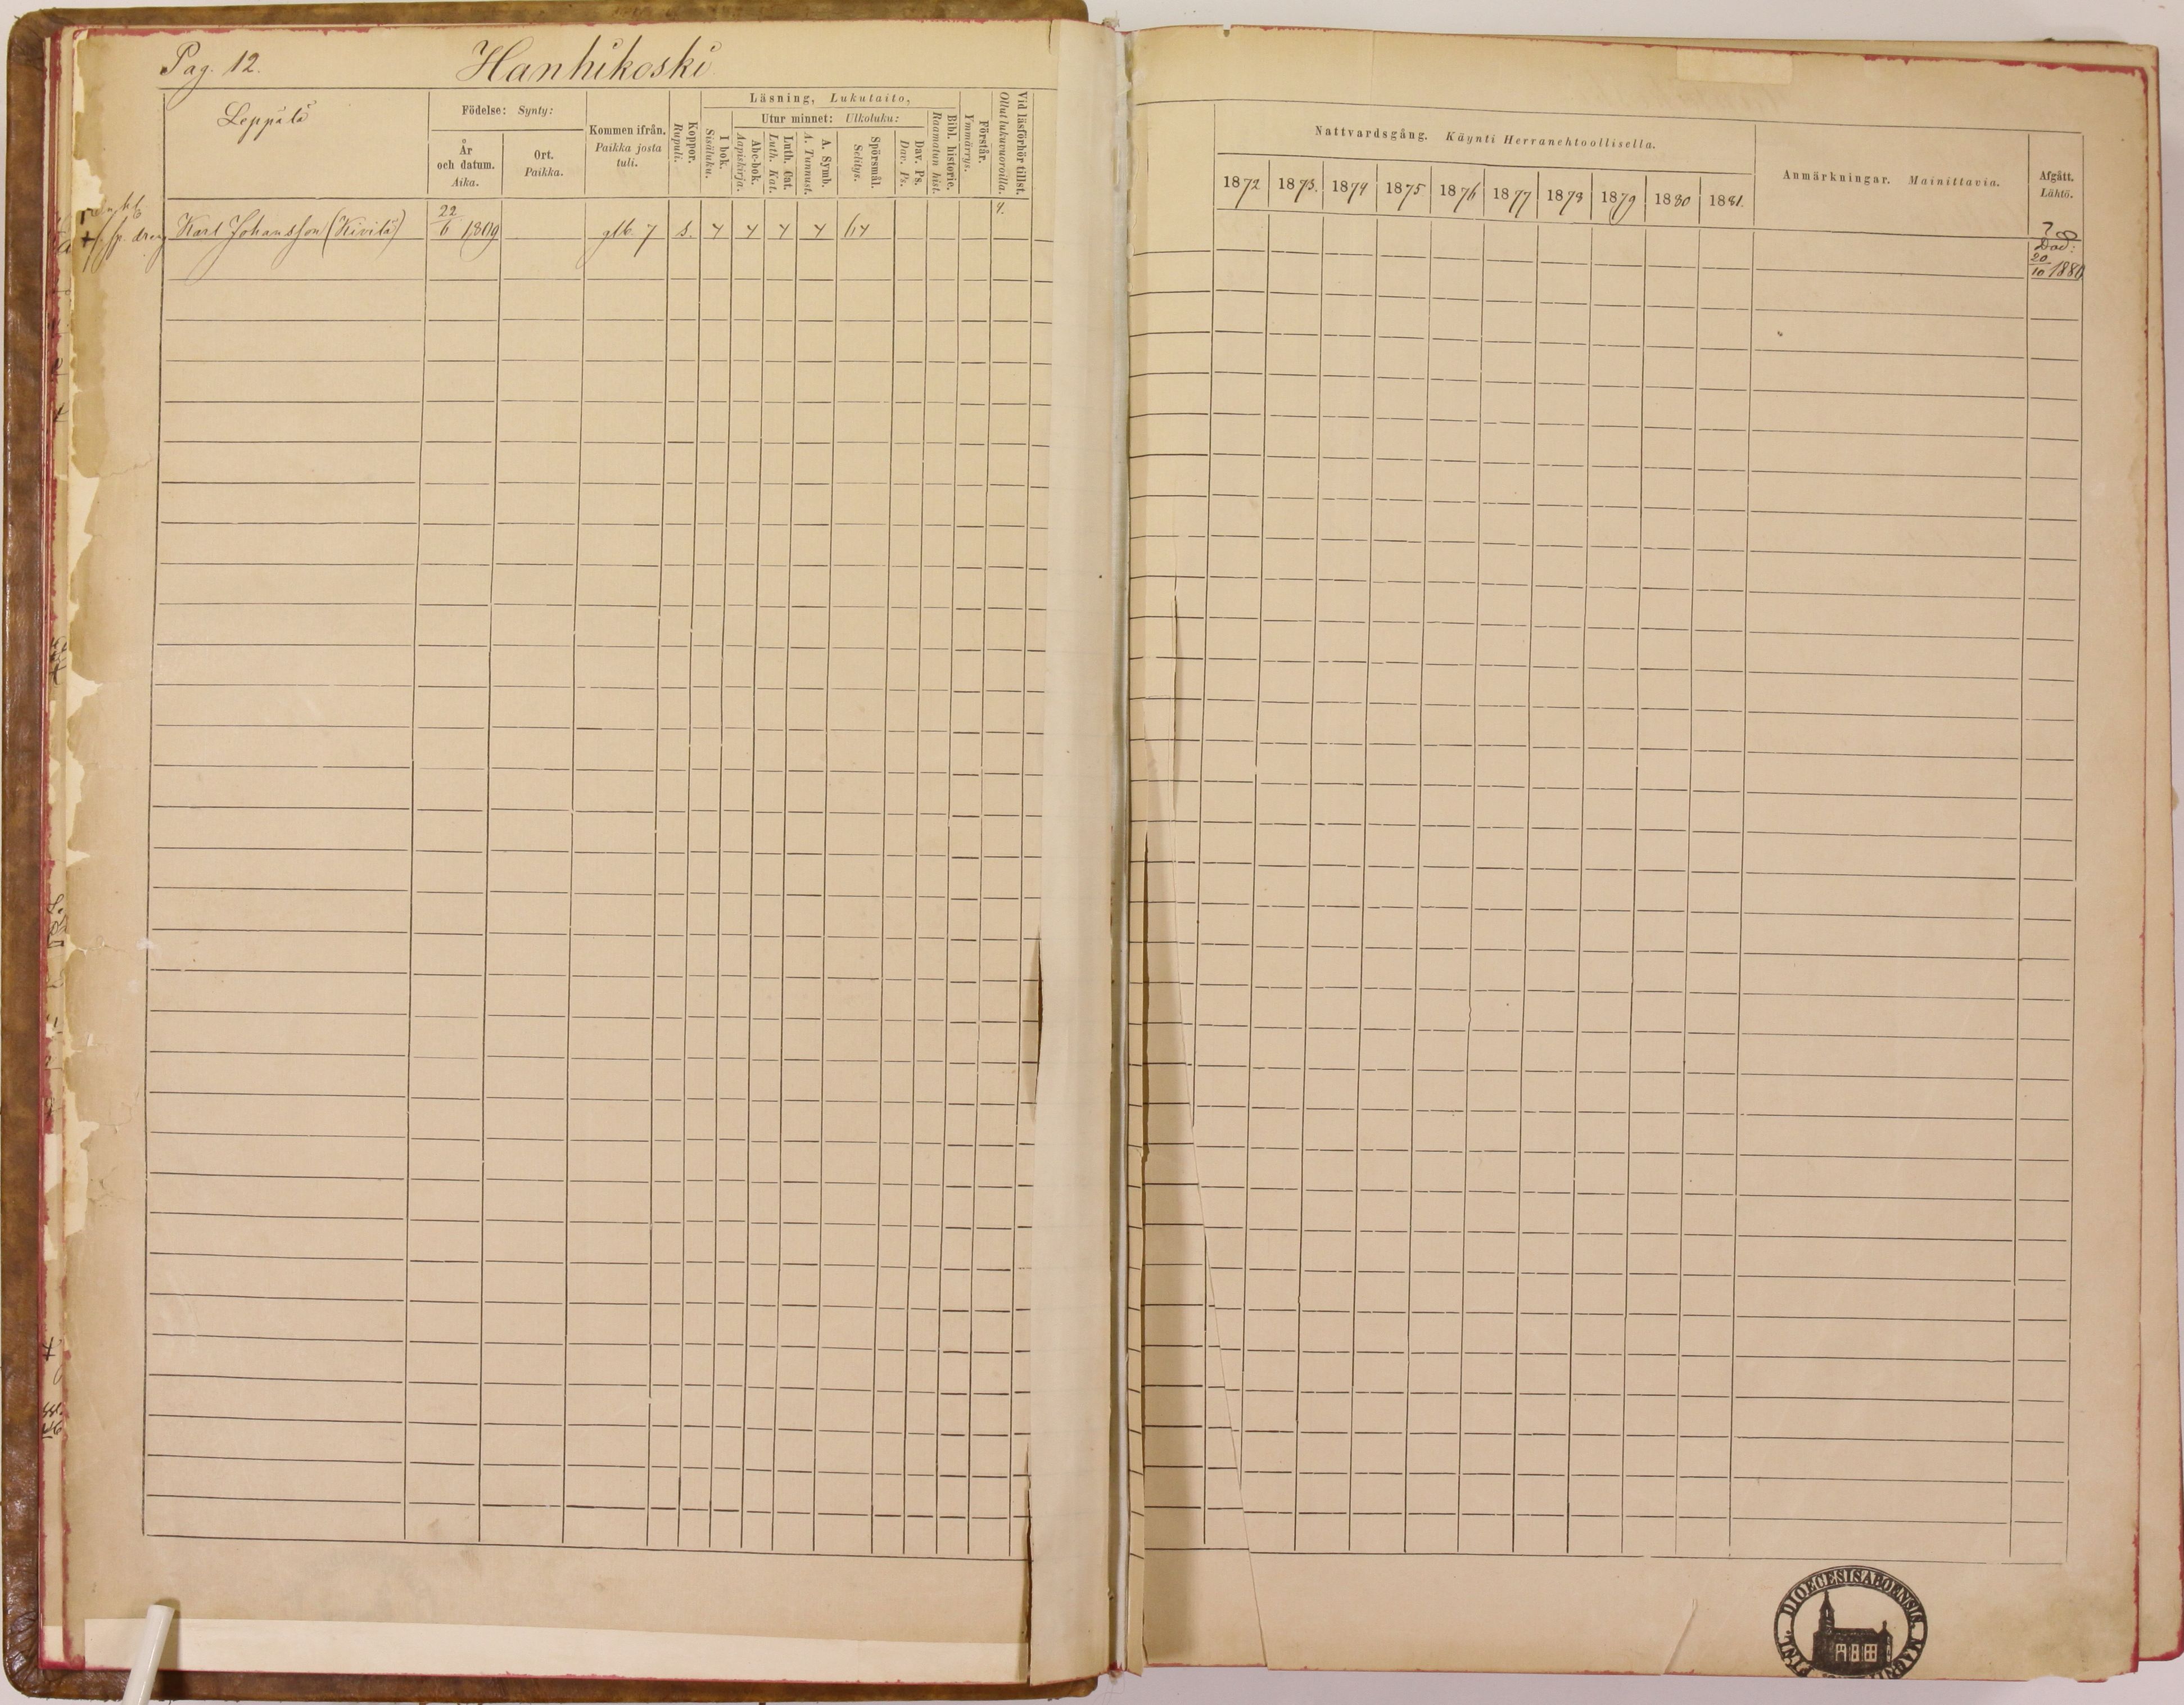 Pag. 12. Hanhikoski
Leppälä
Födelse: Synty:
År och datum. Aika.
Ort. Paikka.
Kommen ifrån. Paikka josta tuli.
Koppor. Rupuli.
Läsning, Lukutaito,
I bok. Sisäluku.
Utur minnet: Ulkoluku:
Abc-bok. Aapiskirja.
Luth. Cat. Luth. Kat.
A. Symb. A. Tunnust.
Spörsmål. Selitys.
Dav. Ps. Dav. Ps.
Bibl. historie. Raamatun hist.
Förstår. Ymmärrys.
Vid läsförhör tillst. Ollut lukuvuoroilla.
Nattvardsgång. Käynti Herranehtoollisella.
1872 1873. 1874 1875 1876 1877 1878 1879 1880 1881.
Anmärkningar. Mainittavia.
Afgått. Lähtö.
Karl Johansson (Kivilä) 22/6 1809 glb. 7 s.
Död:
20/10 1880
DIOECESIS ABOENSIS